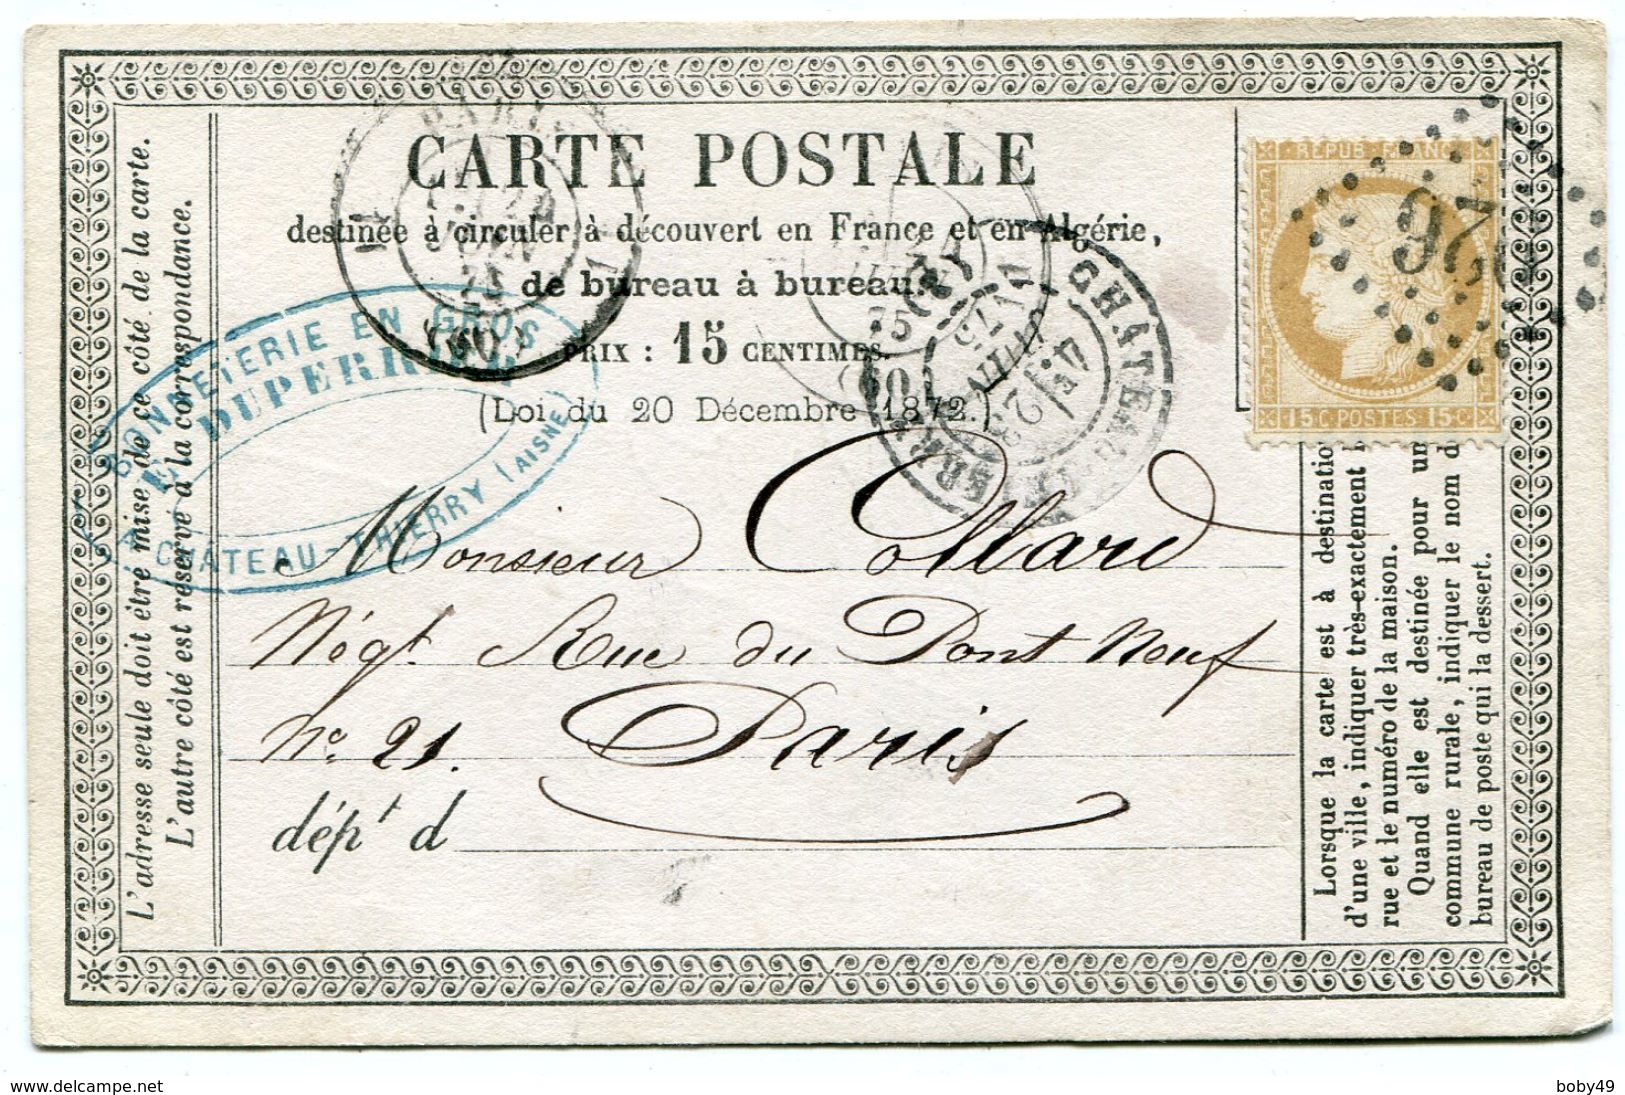 CARTE POSTALE
destinée à circuler à découvert en France et en Algérie,
de bureau à bureau.
PRIX : 15 CENTIMES.
(Loi du 20 Décembre 1872.)
REPUB. FRANC.
15 C. POSTES 15 C.
226
PARIS
75
(60)
75
(60)
CHATEAU-THIERRY
4E
28
75
(2)
BONNETERIE EN GROS
E. DUPERR
A CHÂTEAU-THIERRY (AISNE)
Monsieur Collard
Négt. Rue du Pont Neuf
No. 21. Paris
dépt d
L'adresse seule doit être mise de ce côté de la carte.
L'autre côté est réservé à la correspondance.
Lorsque la carte est à destination
d'une ville, indiquer très-exactement l
rue et le numéro de la maison.
Quand elle est destinée pour un
commune rurale, indiquer le nom d
bureau de poste qui la dessert.
delcampe.net
boby49